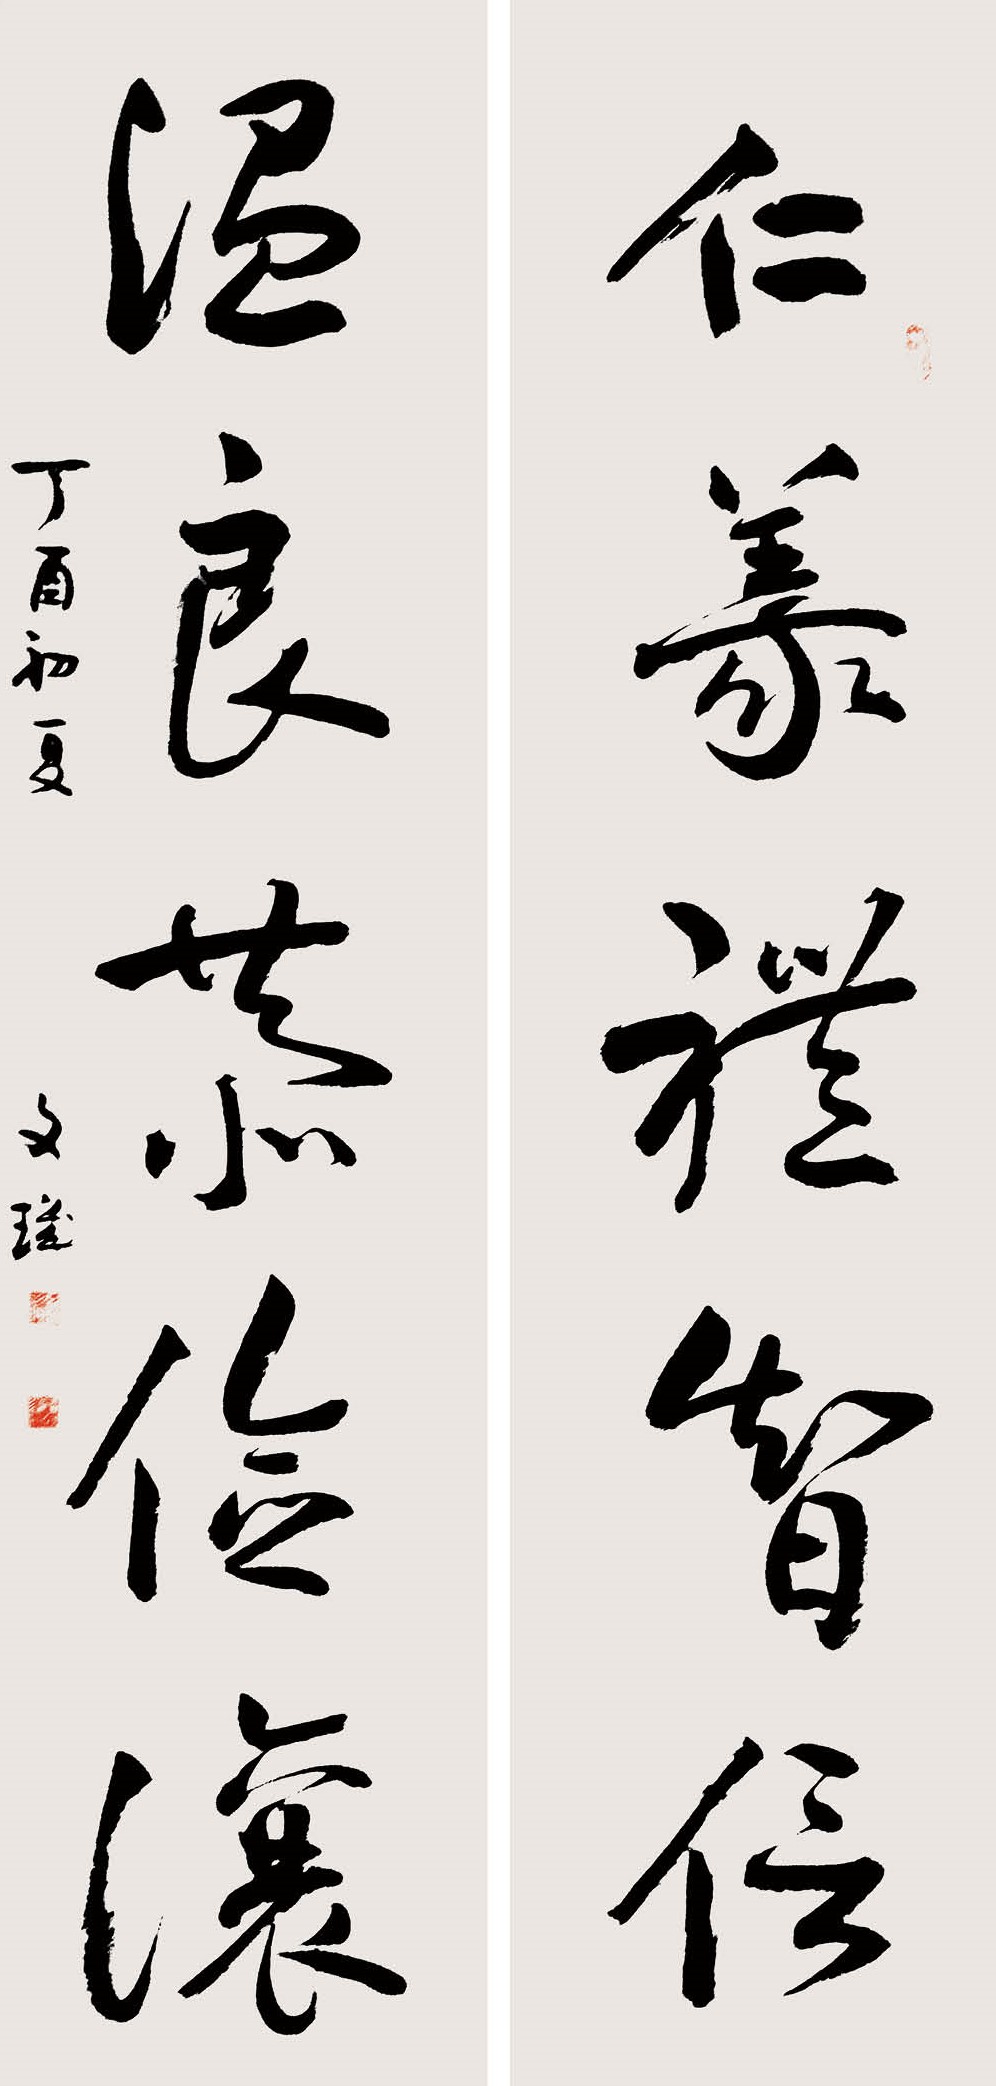 仁義禮智信
温良恭儉讓
丁酉初夏
文瑞